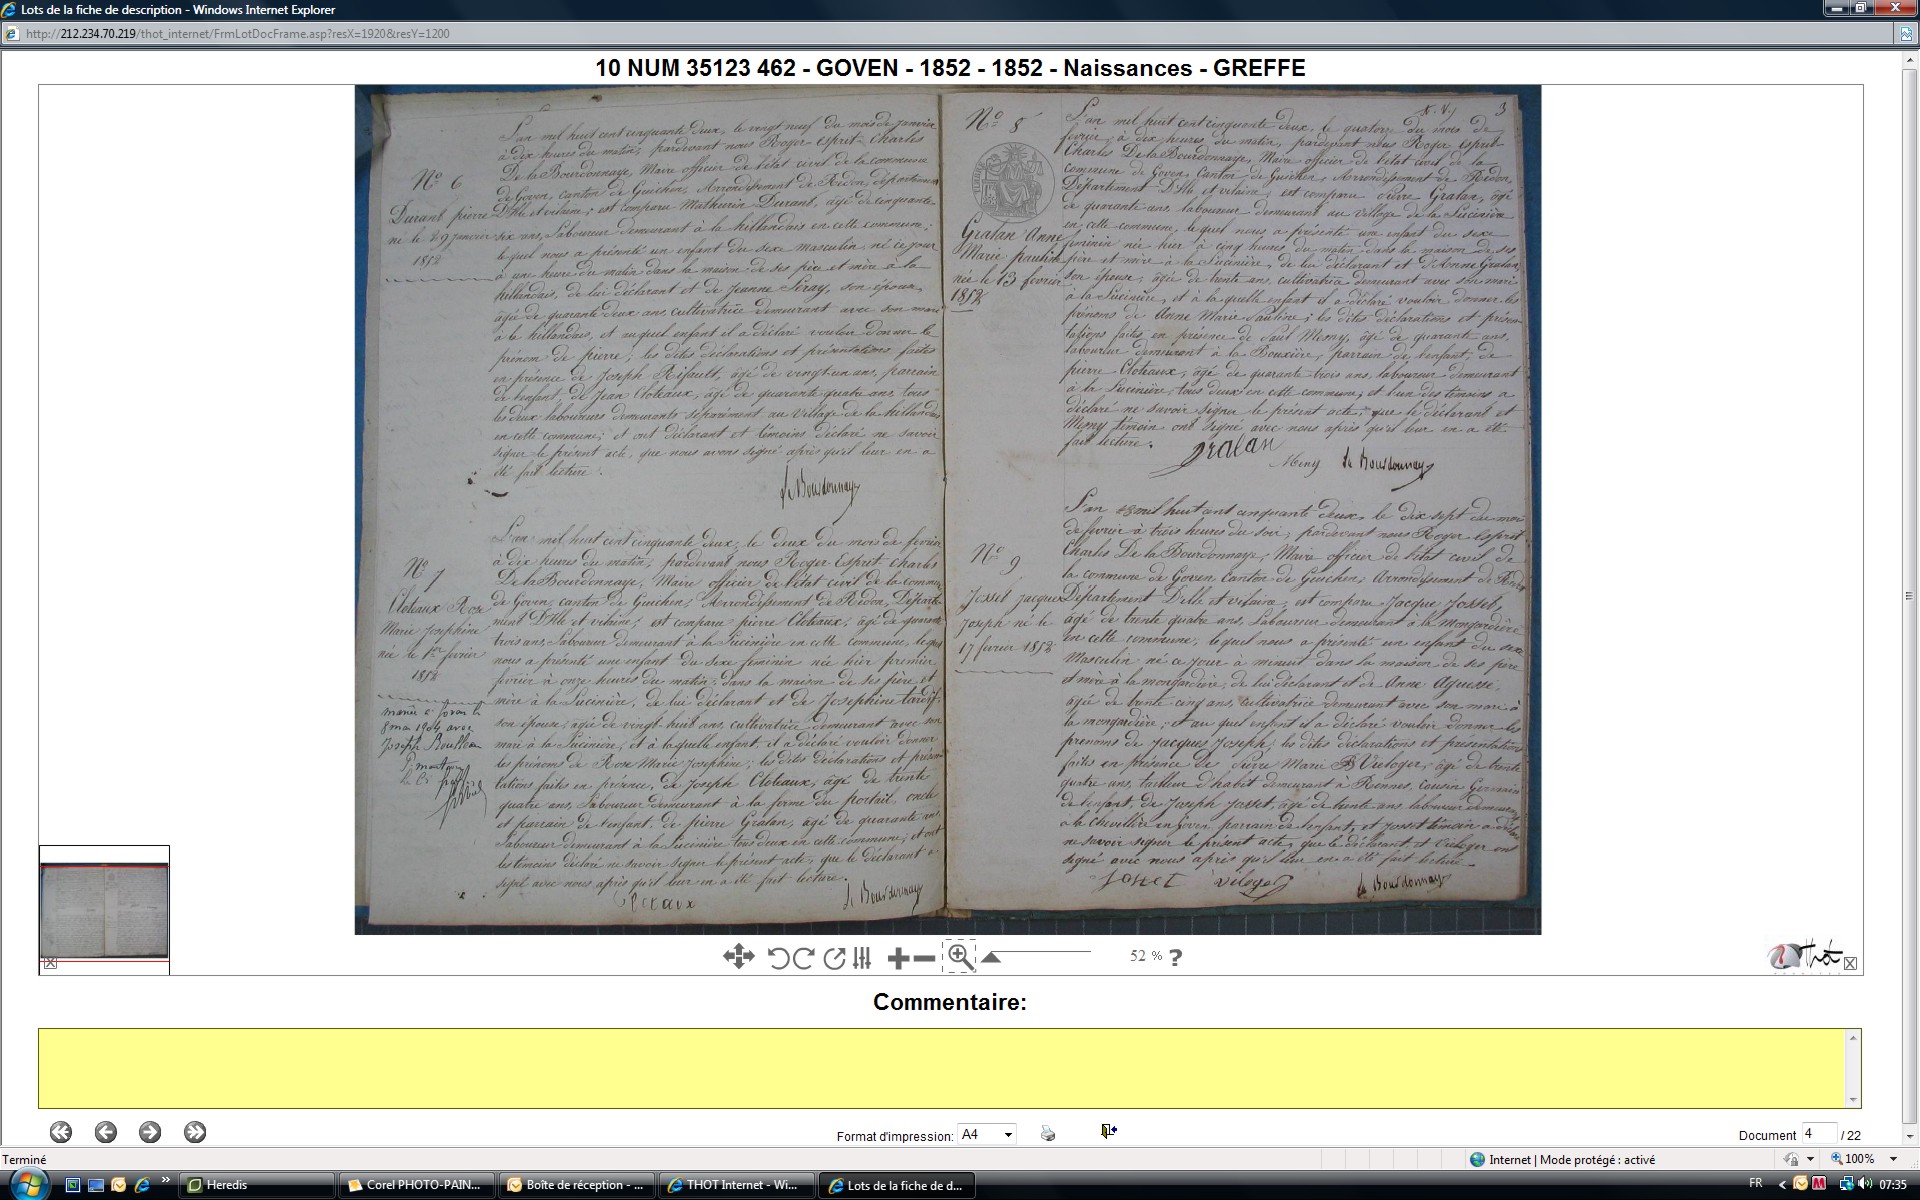 Lots de la fiche de description - Windows Internet Explorer
http://212.234.70.219/thot_internet/FrmLotDocFrame.asp?resX=1920&resY=1200
10 NUM 35123 462 - GOVEN - 1852 - 1852 - Naissances - GREFFE
L'an mil huit cent cinquante deux, le vingt neuf du mois de janvier
à dix heures du matin, pardevant nous Roger esprit Charles
De la Bourdonnaye, Maire officier de l'état civil de la commune
de Goven, canton de Guichen, Arrondissement de Redon, département
D'Ille et vilaine, est comparu Mathurin Durant, âgé de cinquante
six ans, Laboureur demeurant à la hillandais en cette commune,
lequel nous a présenté un enfant du sexe masculin, né ce jour
à une heure du matin dans la maison de ses père et mère à la
hillandais, de lui déclarant et de Jeanne, son épouse,
âgée de quarante deux ans, cultivatrice demeurant avec son mari
à la hillandais, et auquel enfant il a déclaré vouloir donner le
prénom de pierre, les dites déclarations et présentations faites
en présence de Joseph Rifault, âgé de vingt-un ans, parrain
de l'enfant, de Jean Cloteaux, âgé de quarante quatre ans, tous
les deux laboureurs demeurants séparément au village de la hillandais
en cette commune, et ont déclarant et témoins déclaré ne savoir
signer le présent acte, que nous avons signé après qu'il leur en a
été fait lecture.
De Bourdonnaye
No 6
Durant pierre
né le 29 janvier
1852
L'an mil huit cent cinquante deux, le deux du mois de fevrier
à dix heures du matin, pardevant nous Roger Esprit Charles
De la Bourdonnaye, Maire officier de l'état civil de la commune
de Goven, canton de Guichen, Arrondissement de Redon, Départe-
ment D'Ille et vilaine, est comparu pierre Cloteaux, âgé de quarante
trois ans, Laboureur demeurant à la Lucinière en cette commune, lequel
nous a présenté une enfant du sexe feminin née hier premier
fevrier à onze heures du matin, dans la maison de ses père et
mère à la Lucinière, de lui déclarant et de Josephine tardif,
son épouse, âgée de vingt-huit ans, cultivatrice demeurant avec son
mari à la Lucinière, et à laquelle enfant, il a déclaré vouloir donner
les prénoms de Rose Marie Josephine; les dites déclarations et présen-
tations faites en présence, de Joseph Cloteaux, âgé de trente
quatre ans, Laboureur demeurant à la ferme du portail, oncle
et parrain de l'enfant, de pierre Gralan, âgé de quarante ans
Laboureur demeurant à la Lucinière tous deux en cette commune, et ont
les témoins déclaré ne savoir signer le présent acte, que le déclarant a
signé avec nous après qu'il leur en a été fait lecture.
Cloteaux De Bourdonnaye
No 7
Cloteaux Rose
Marie Josephine
née le 1er fevrier
1852
mariée à Goven le
8 mai 1904 avec
Joseph
No 8
Gralan Anne
Marie pauline
née le 13 fevrier
1852
3
L'an mil huit cent cinquante deux, le quatorze du mois de
fevrier, à dix heures du matin, pardevant nous Roger esprit
Charles De la Bourdonnaye, Maire officier de l'état civil de la
commune de Goven, Canton de Guichen, Arrondissement de Redon,
Département D'Ille et vilaine, est comparu Pierre Gralan, âgé
de quarante ans, laboureur demeurant au village de la Lucinière
en cette commune, lequel nous a présenté une enfant du sexe
feminin née hier à cinq heures du matin, dans la maison de ses
père et mère à la Lucinière, de lui déclarant et d'Anne Gralan,
son épouse, âgée de trente ans, cultivatrice demeurant avec son mari
à la Lucinière, et à la quelle enfant il a déclaré vouloir donner les
prénoms de Anne Marie Pauline; les dites déclarations et présen-
tations faites en présence de Paul Mesny, âgé de quarante ans,
laboureur demeurant à la Bouxière, parrain de l'enfant, de
pierre Cloteaux, âgé de quarante trois ans, laboureur demeurant
à la Lucinière, tous deux en cette commune, et l'un des témoins a
déclaré ne savoir signer le présent acte, que le déclarant et
Mesny témoin ont signé avec nous après qu'il leur en a été
fait lecture.
gralan Meny De Bourdonnaye
No 9
Josset Jacques
Joseph né le
17 fevrier 1852
L'an mil huit cent cinquante deux, le dix sept du mois
de fevrier à trois heures du soir, pardevant nous Roger esprit
Charles De la Bourdonnaye, Maire officier de l'état civil de
la commune de Goven, Canton de Guichen, Arrondissement de Redon
Département D'Ille et vilaine, est comparu Jacque Josset,
âgé de trente quatre ans, Laboureur demeurant à la mongardière
en cette commune, lequel nous a présenté un enfant du sexe
Masculin né ce jour à minuit dans la maison de ses père
et mère à la mongardière, de lui déclarant et de Anne Aguesse,
âgée de trente cinq ans, cultivatrice demeurant avec son mari à
la mongardière, et au quel enfant il a déclaré vouloir donner les
prenoms de Jacques Joseph, les dites déclarations et presentations
faites en présence de Pierre Marie Vieloger, âgé de trente
quatre ans, tailleur d'habit demeurant à Rennes, cousin Germain
de l'enfant, de Joseph Josset, âgé de trente ans laboureur demeurant
à la Chevillère en Goven, parrain de l'enfant, et Josset témoin a déclaré
ne savoir signer le présent acte, que le déclarant et Vieloger ont
signé avec nous après qu'il leur en a été fait lecture.
Josset Viloger De Bourdonnaye
52 % ?
Thot
Commentaire:
Format d'impression: A4
Document 4 / 22
Terminé
Internet | Mode protégé : activé
100%
Heredis
Corel PHOTO-PAIN...
Boîte de réception - ...
THOT Internet - Wi...
Lots de la fiche de d...
FR
07:35